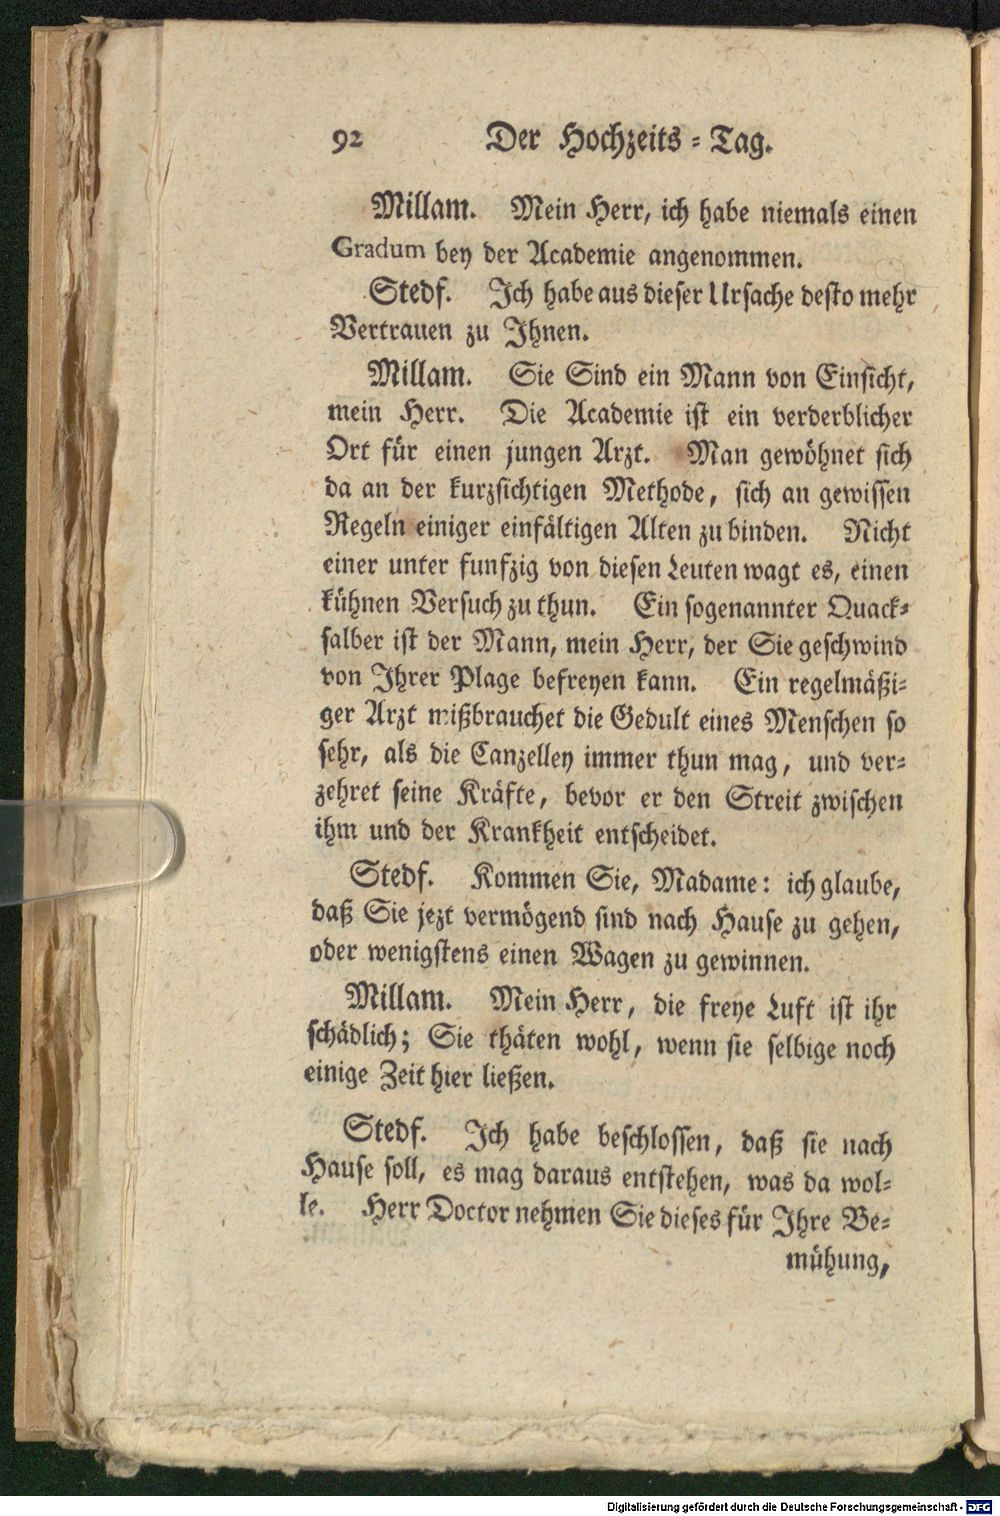 92 Der Hochzeits-Tag.
Millam. Mein Herr, ich habe niemals einen
Gradum bey der Academie angenommen.
Stedf. Ich habe aus dieser Ursache desto mehr
Vertrauen zu Ihnen.
Millam. Sie Sind ein Mann von Einsicht,
mein Herr. Die Academie ist ein verderblicher
Ort für einen jungen Arzt. Man gewöhnet sich
da an der kurzsichtigen Methode, sich an gewissen
Regeln einiger einfältigen Alten zu binden. Nicht
einer unter funfzig von diesen Leuten wagt es, einen
kühnen Versuch zu thun. Ein sogenannter Quack-
salber ist der Mann, mein Herr, der Sie geschwind
von Ihrer Plage befreyen kann. Ein regelmäßi-
ger Arzt mißbrauchet die Gedult eines Menschen so
sehr, als die Canzelley immer thun mag, und ver-
zehret seine Kräfte, bevor er den Streit zwischen
ihm und der Krankheit entscheidet.
Stedf. Kommen Sie, Madame: ich glaube,
daß Sie jezt vermögend sind nach Hause zu gehen,
oder wenigstens einen Wagen zu gewinnen.
Millam. Mein Herr, die freye Luft ist ihr
schädlich; Sie thäten wohl, wenn sie selbige noch
einige Zeit hier ließen.
Stedf. Ich habe beschlossen, daß sie nach
Hause soll, es mag daraus entstehen, was da wol-
le. Herr Doctor nehmen Sie dieses für Ihre Be-
mühung,
Digitalisierung gefördert durch die Deutsche Forschungsgemeinschaft - DFG